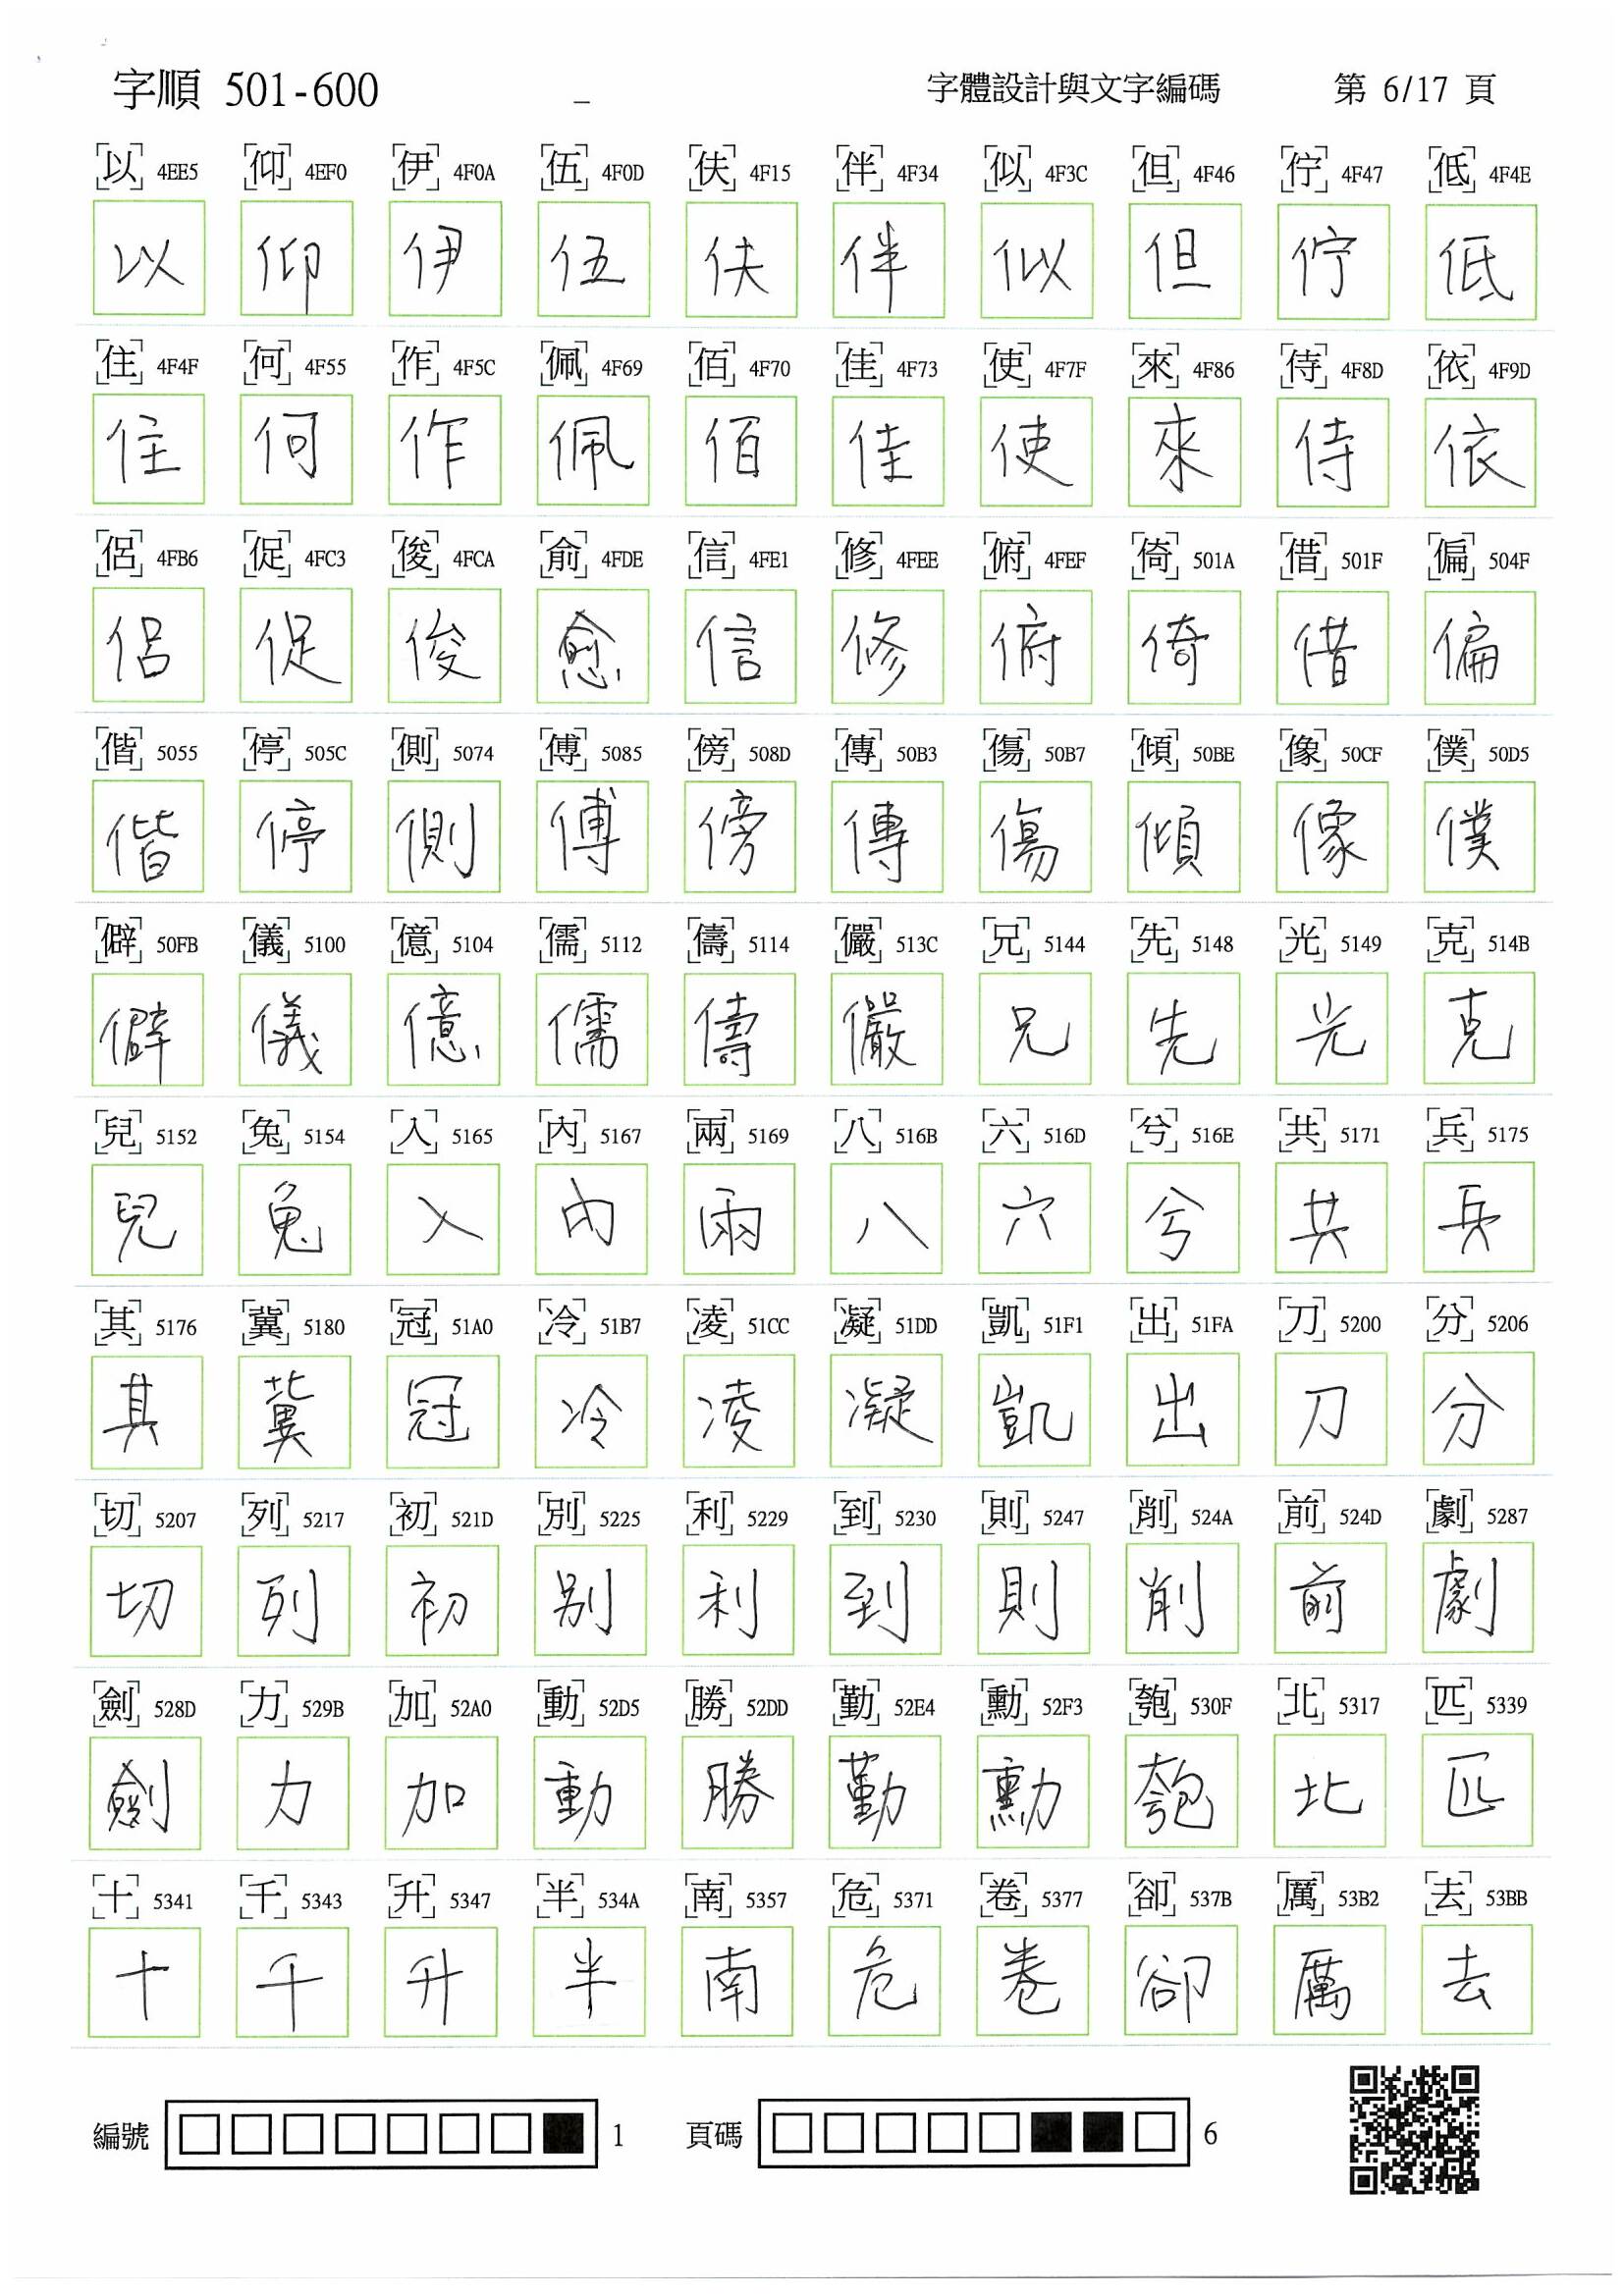 字順 501-600 _ 字體設計與文字編碼 第 6/17 頁
以 4EE5 仰 4EF0 伊 4F0A 伍 4F0D 伕 4F15 伴 4F34 似 4F3C 但 4F46 佇 4F47 低 4F4E
以 仰 伊 伍 伕 伴 似 但 佇 低
住 4F4F 何 4F55 作 4F5C 佩 4F69 佰 4F70 佳 4F73 使 4F7F 來 4F86 侍 4F8D 依 4F9D
住 何 作 佩 佰 佳 使 來 侍 依
侶 4FB6 促 4FC3 俊 4FCA 俞 4FDE 信 4FE1 修 4FEE 俯 4FEF 倚 501A 借 501F 偏 504F
侶 促 俊 愈 信 修 俯 倚 借 偏
偕 5055 停 505C 側 5074 傅 5085 傍 508D 傳 50B3 傷 50B7 傾 50BE 像 50CF 僕 50D5
偕 停 側 傅 傍 傳 傷 傾 像 僕
僻 50FB 儀 5100 億 5104 儒 5112 儔 5114 儼 513C 兄 5144 先 5148 光 5149 克 514B
僻 儀 億 儒 儔 儼 兄 先 光 克
兒 5152 兔 5154 入 5165 內 5167 兩 5169 八 516B 六 516D 兮 516E 共 5171 兵 5175
兒 兔 入 內 兩 八 六 兮 共 兵
其 5176 冀 5180 冠 51A0 冷 51B7 凌 51CC 凝 51DD 凱 51F1 出 51FA 刀 5200 分 5206
其 冀 冠 冷 凌 凝 凱 出 刀 分
切 5207 列 5217 初 521D 別 5225 利 5229 到 5230 則 5247 削 524A 前 524D 劇 5287
切 列 初 別 利 到 則 削 前 劇
劍 528D 力 529B 加 52A0 動 52D5 勝 52DD 勤 52E4 勳 52F3 匏 530F 北 5317 匹 5339
劍 力 加 動 勝 勤 勳 匏 北 匹
十 5341 千 5343 升 5347 半 534A 南 5357 危 5371 卷 5377 卻 537B 厲 53B2 去 53BB
十 千 升 半 南 危 卷 卻 厲 去
編號 1 頁碼 6